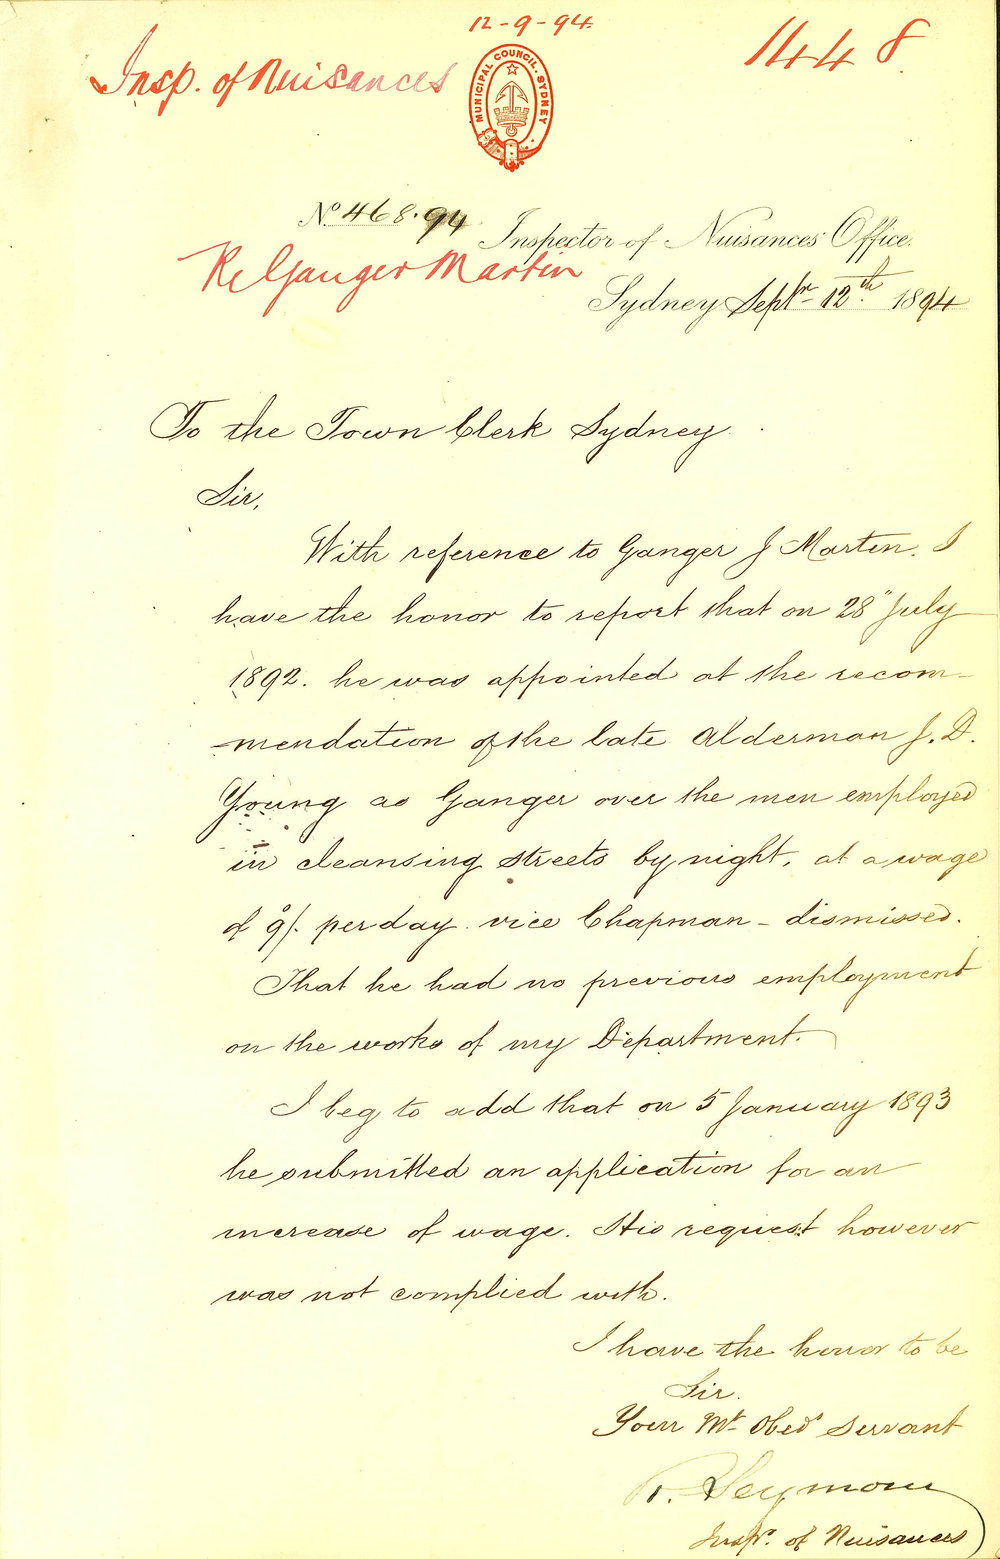 12-9-94.
1448.
Insp. of Nuisances
MUNICIPAL COUNCIL. SYDNEY
No. 468.94 Inspector of Nuisances' Office.
Re Ganger Martin
Sydney Septr 12th 1894
To the Town Clerk Sydney
Sir,
With reference to Ganger J Martin. I
have the honor to report that on 28" July
1892. he was appointed at the recom-
-mendation of the late Alderman J. D.
Young as Ganger over the men employed
in cleansing streets by night, at a wage
of 9/. per day vice Chapman - dismissed.
That he had no previous employment
on the works of my Department.
I beg to add that on 5 January 1893
he submitted an application for an
increase of wage. His request however
was not complied with.
I have the honor to be
Sir.
Your Mt Obedt Servant
R. Seymour
Inspr. of Nuisances